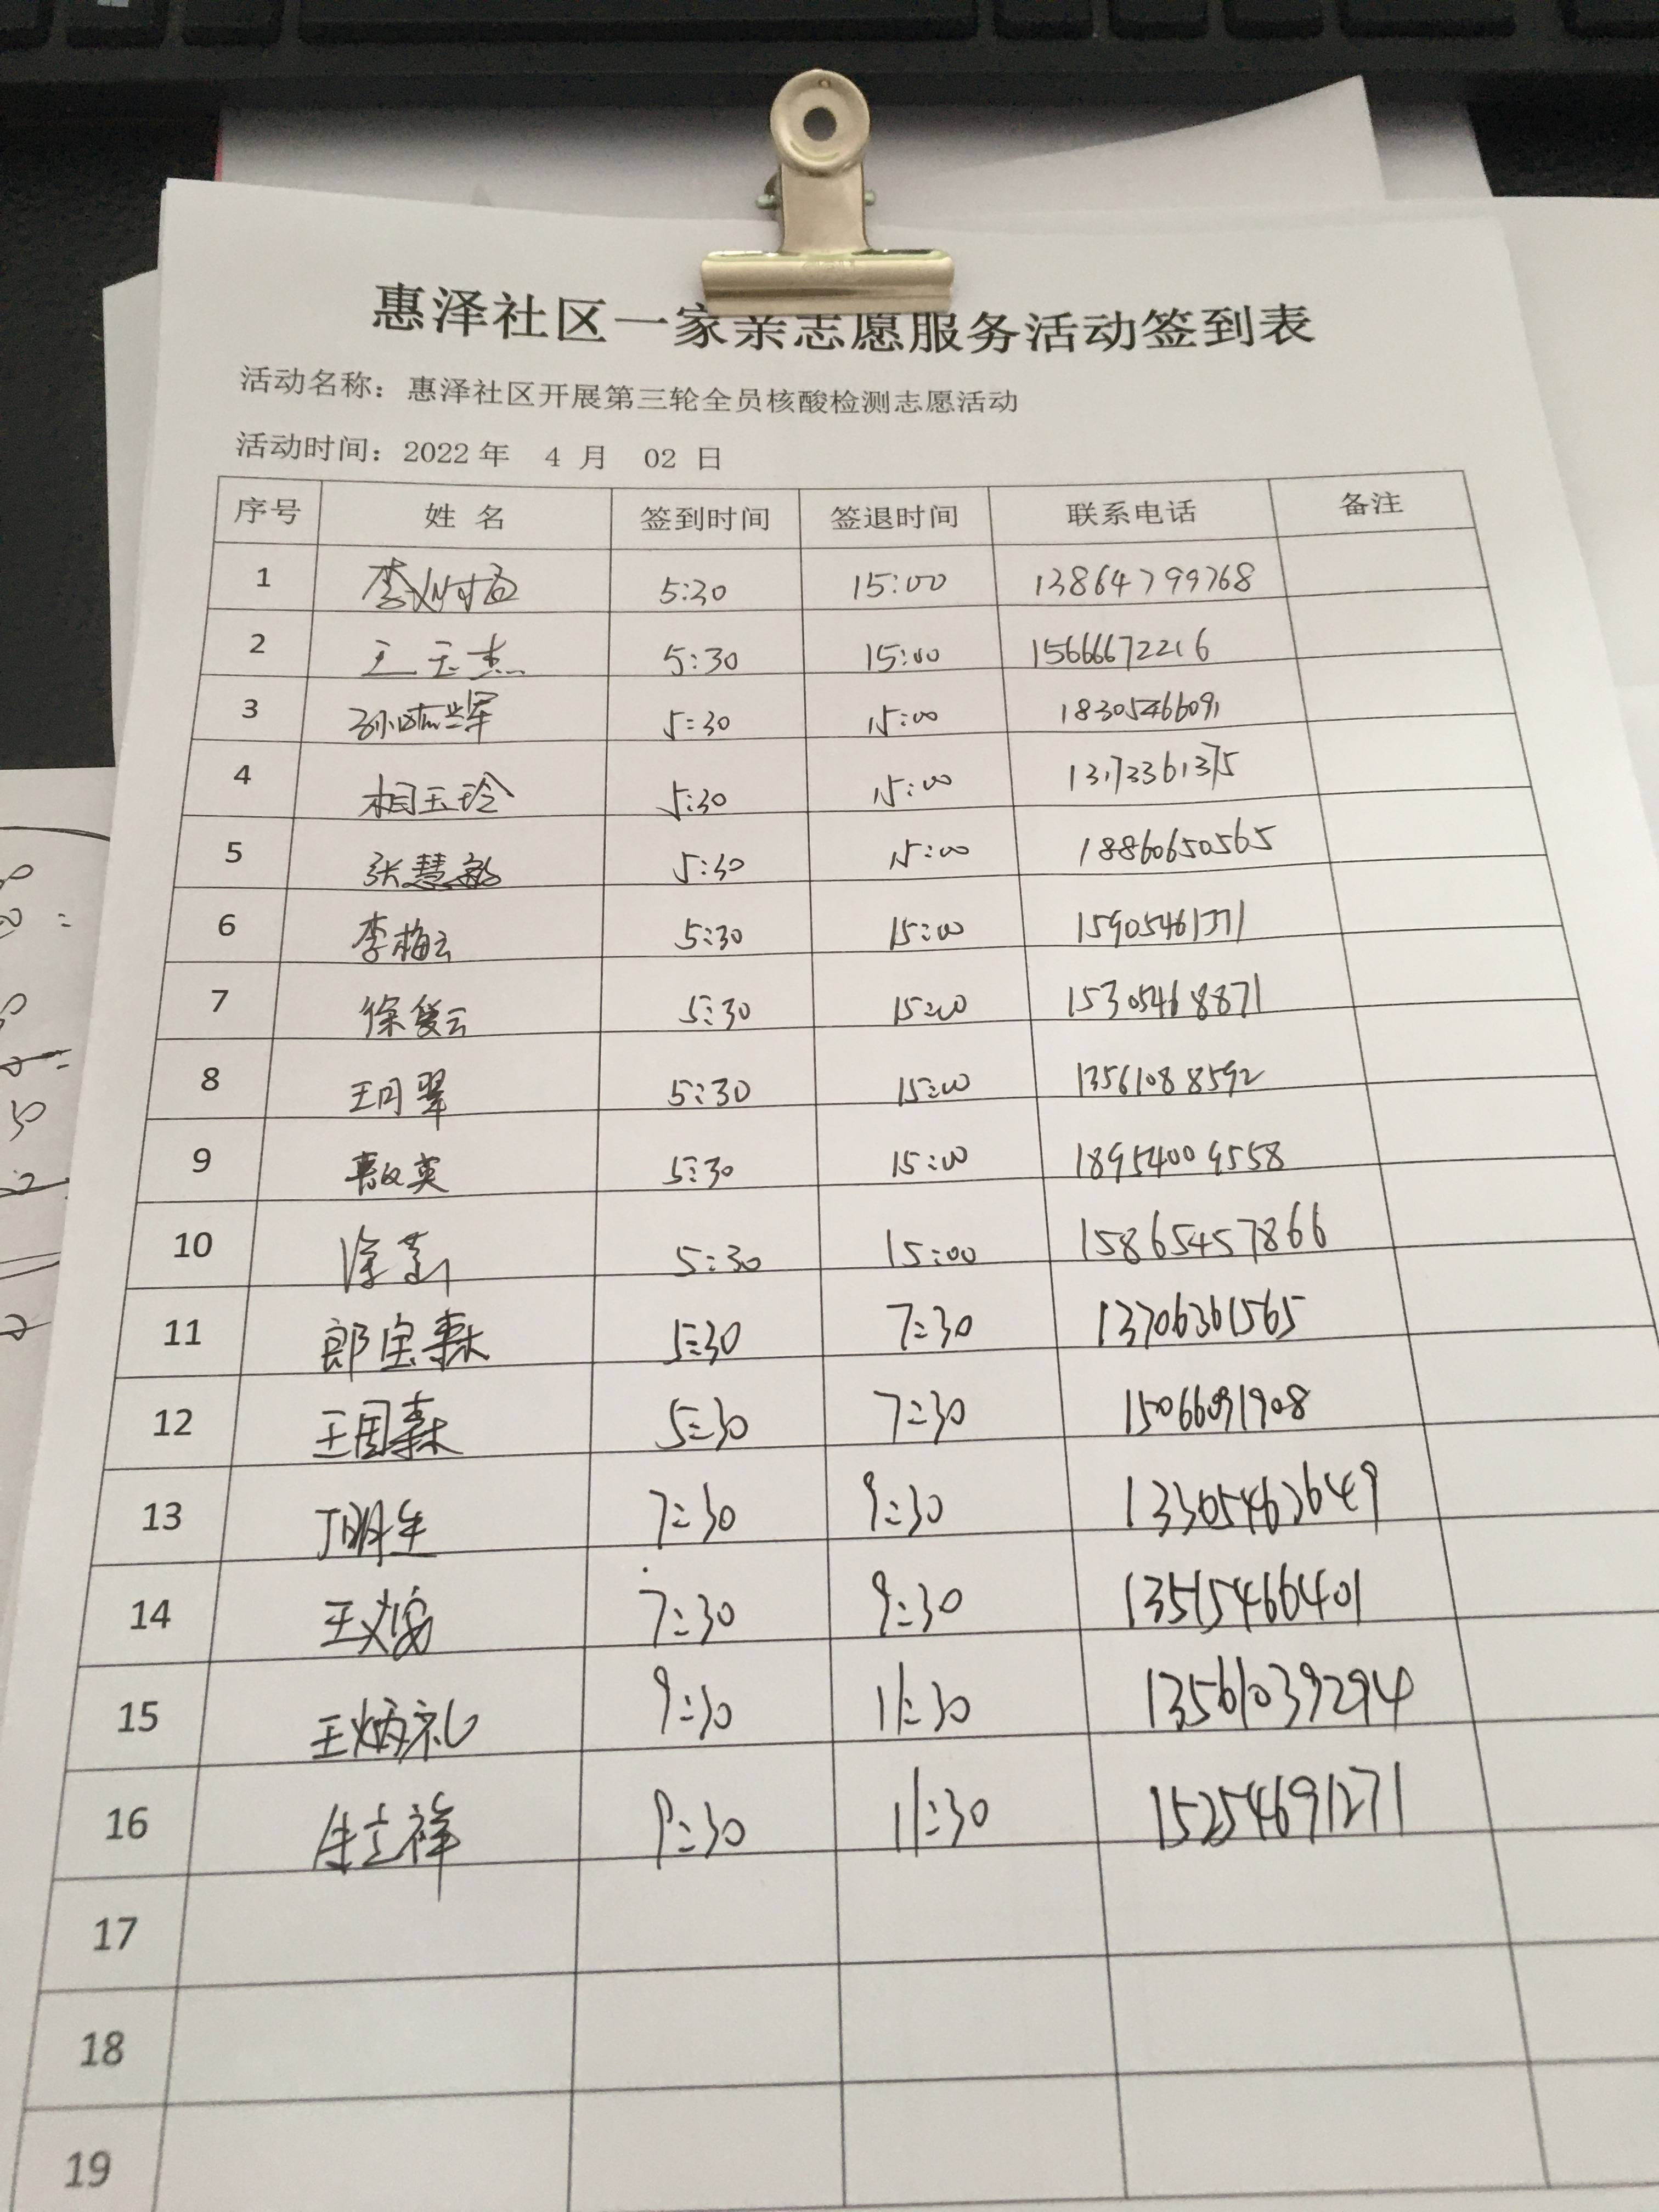 惠泽社区一家亲志愿服务活动签到表
活动名称：惠泽社区开展第三轮全员核酸检测志愿活动
活动时间：2022年 4 月 02 日
序号 姓 名 签到时间 签退时间 联系电话 备注
1 5:30 15:00 13864799768
2 王玉杰 5:30 15:00 15666672216
3 5:30 15:00 18305466091
4 相玉玲 5:30 15:00 13173361375
5 张慧敏 5:30 15:00 18860650565
6 李梅云 5:30 15:00 15905461371
7 徐俊云 5:30 15:00 15305468871
8 王月翠 5:30 15:00 13561088592
9 5:30 15:00 18954009558
10 5:30 15:00 15865457866
11 郎宝森 5:30 7:30 13706361565
12 王国森 5:30 7:30 15066091908
13 丁明生 7:30 9:30 13305463649
14 7:30 9:30 13515466401
15 王炳礼 9:30 11:30 13561039294
16 9:30 11:30 15254691271
17
18
19